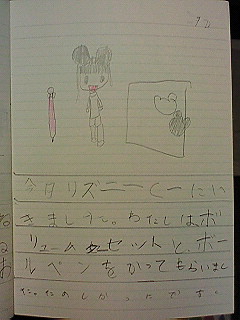 12
今日リズニーくーにい
きましうた。わたしはボ
リュームターセットと、ボー
ルペンをかってもらいまし
た。たのしかったです。